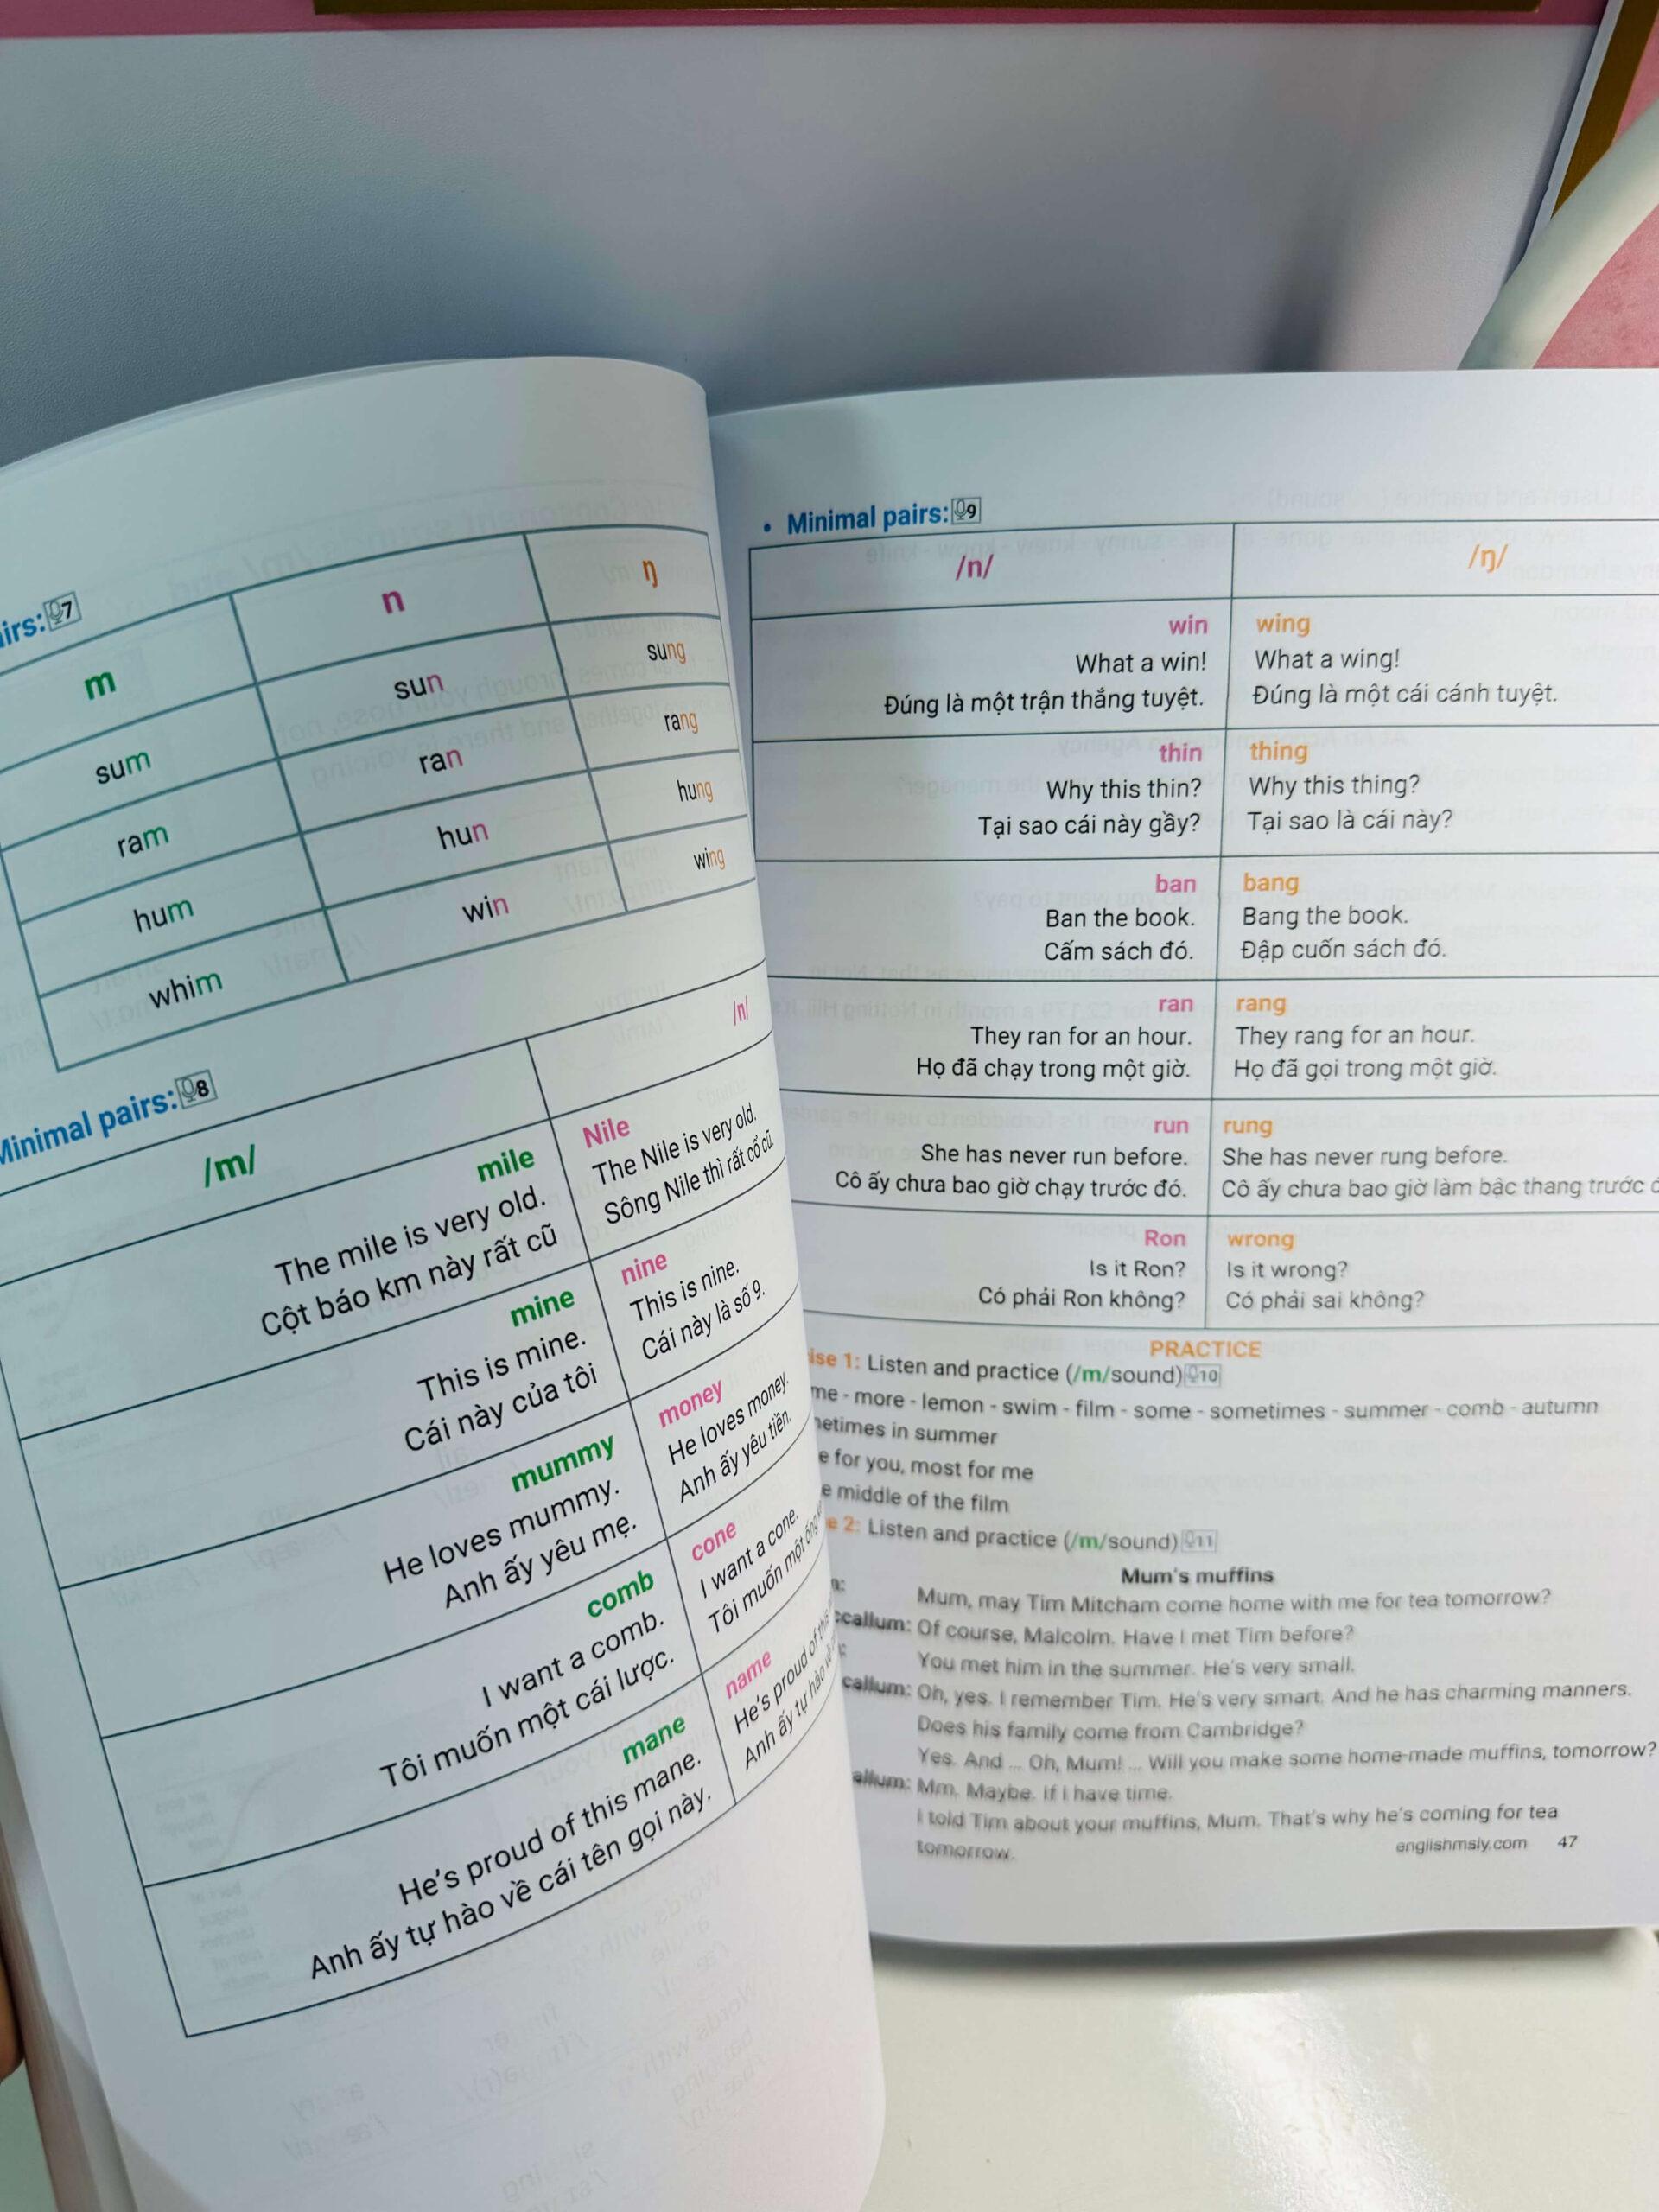 irs: 7
m n ŋ
sum sun sung
ram ran rang
hum hun hung
whim win wing
Minimal pairs: 8
/m/ /n/
mile
The mile is very old.
Cột báo km này rất cũ
Nile
The Nile is very old.
Sông Nile thì rất cổ cũ.
mine
This is mine.
Cái này của tôi
nine
This is nine.
Cái này là số 9.
mummy
He loves mummy.
Anh ấy yêu mẹ.
money
He loves money.
Anh ấy yêu tiền.
comb
I want a comb.
Tôi muốn một cái lược.
cone
I want a cone.
Tôi muốn một ống
mane
He's proud of this mane.
Anh ấy tự hào về cái tên gọi này.
name
He's proud of this
Anh ấy tự hào về
• Minimal pairs: 9
/n/ /ŋ/
win
What a win!
Đúng là một trận thắng tuyệt.
wing
What a wing!
Đúng là một cái cánh tuyệt.
thin
Why this thin?
Tại sao cái này gầy?
thing
Why this thing?
Tại sao là cái này?
ban
Ban the book.
Cấm sách đó.
bang
Bang the book.
Đập cuốn sách đó.
ran
They ran for an hour.
Họ đã chạy trong một giờ.
rang
They rang for an hour.
Họ đã gọi trong một giờ.
run
She has never run before.
Cô ấy chưa bao giờ chạy trước đó.
rung
She has never rung before.
Cô ấy chưa bao giờ làm bậc thang trước
Ron
Is it Ron?
Có phải Ron không?
wrong
Is it wrong?
Có phải sai không?
PRACTICE
ise 1: Listen and practice (/m/sound) 10
me - more - lemon - swim - film - some - sometimes - summer - comb - autumn
etimes in summer
e for you, most for me
e middle of the film
e 2: Listen and practice (/m/sound) 11
Mum's muffins
Mum, may Tim Mitcham come home with me for tea tomorrow?
ccallum: Of course, Malcolm. Have I met Tim before?
You met him in the summer. He's very small.
callum: Oh, yes. I remember Tim. He's very smart. And he has charming manners.
Does his family come from Cambridge?
Yes. And ... Oh, Mum! ... Will you make some home-made muffins, tomorrow?
allum: Mm. Maybe. If I have time.
I told Tim about your muffins, Mum. That's why he's coming for tea
tomorrow.
englishmsly.com 47